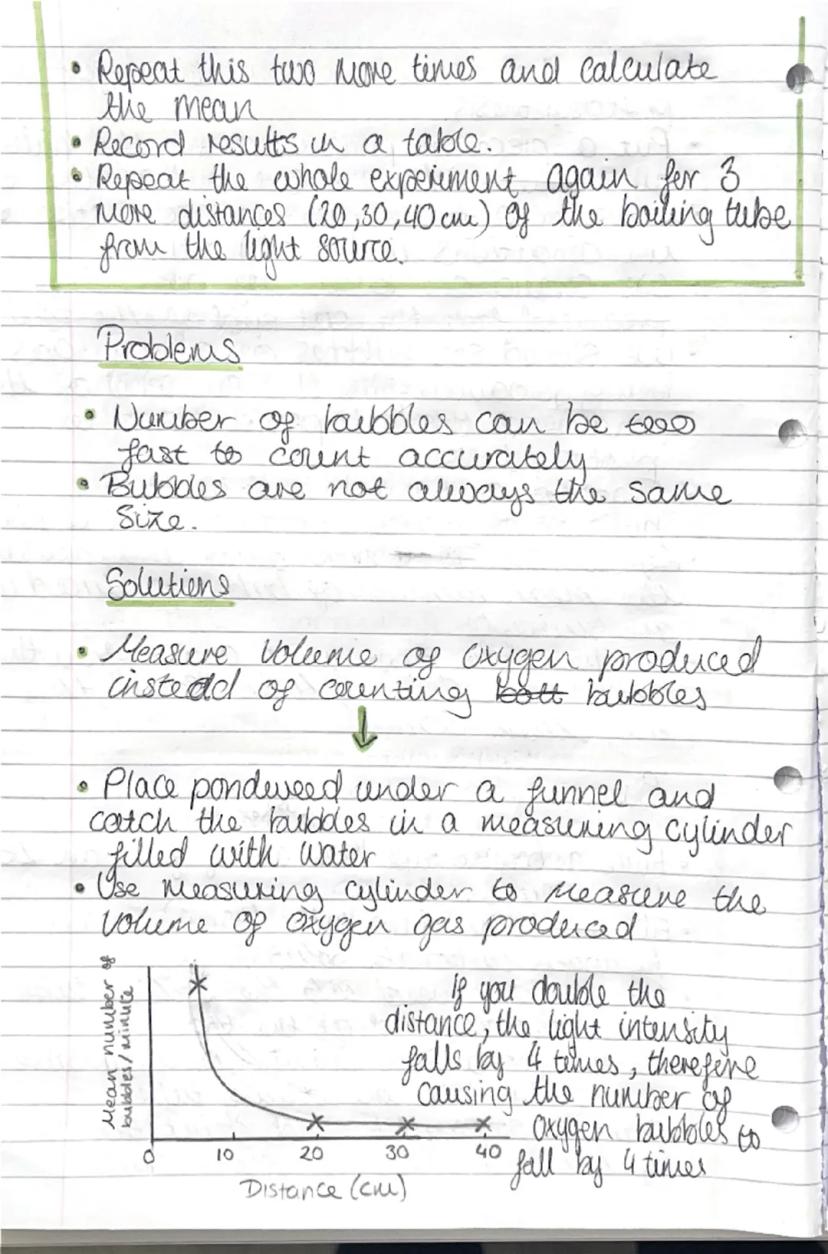 • Repeat this two more times and calculate
the mean
• Record results in a table.
• Repeat the whole experiment again for 3
more distances (20,30,40cm) of the boiling tube
from the light source.
Problems
• Number of bubbles can be too
fast to count accurately
• Bubbles are not always the same
size.
Solutions
• Measure volume of oxygen produced
instead of counting bubbles
• Place pondweed under a funnel and
catch the bubbles in a measuring cylinder
filled with water
• Use measuring cylinder to measure the
volume of oxygen gas produced
Mean number of
bubbles/minute
0 10 20 30 40
Distance (cm)
If you double the
distance, the light intensity
falls by 4 times, therefore
causing the number of
oxygen bubbles to
fall by 4 times